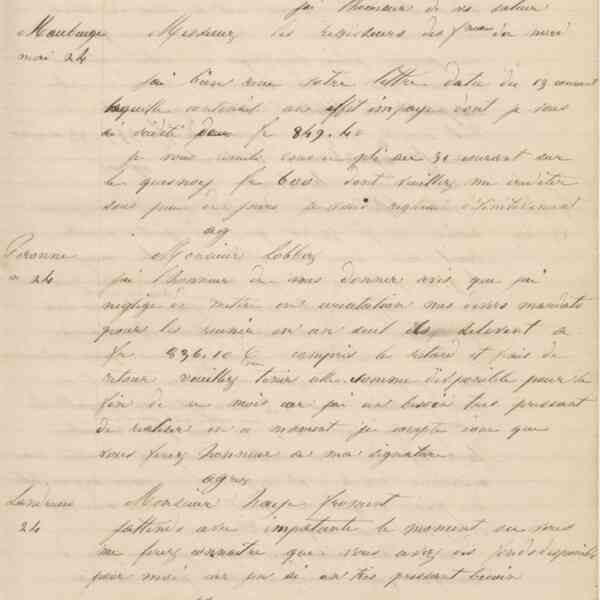 j'ai l'honneur de vs saluer
Maubeuge Messieurs les régisseurs des du
mai 24
j'ai bien reçu votre lettre datée du 19 courant
laquelle contenait un effet impayé dont je vous
ai crédité pour fr 849.40
je vous sur 31 courant sur
le quesnoy fr 600 dont veuillez me créditer
sous peu de jours je vous définitivement
ag
Peronne Monsieur Lobbez
24 j'ai l'honneur de vous donner avis que j'ai
négligé de mettre en circulation mes divers mandats
pour les réunir en un seul ils s'élèvent à
fr 836.10 compris le retard et frais de
retour veuillez tenir cette somme disponible pour la
fin de ce mois car j'ai un besoin très pressant
de réaliser en ce moment je compte donc que
vous ferez honneur à ma signature
agrez
Monsieur froment
24 j'attends avec impatience le moment ou vous
me ferez connaître que vous avez des fonds disponibles
pour moi car j'en ai un très pressant besoin